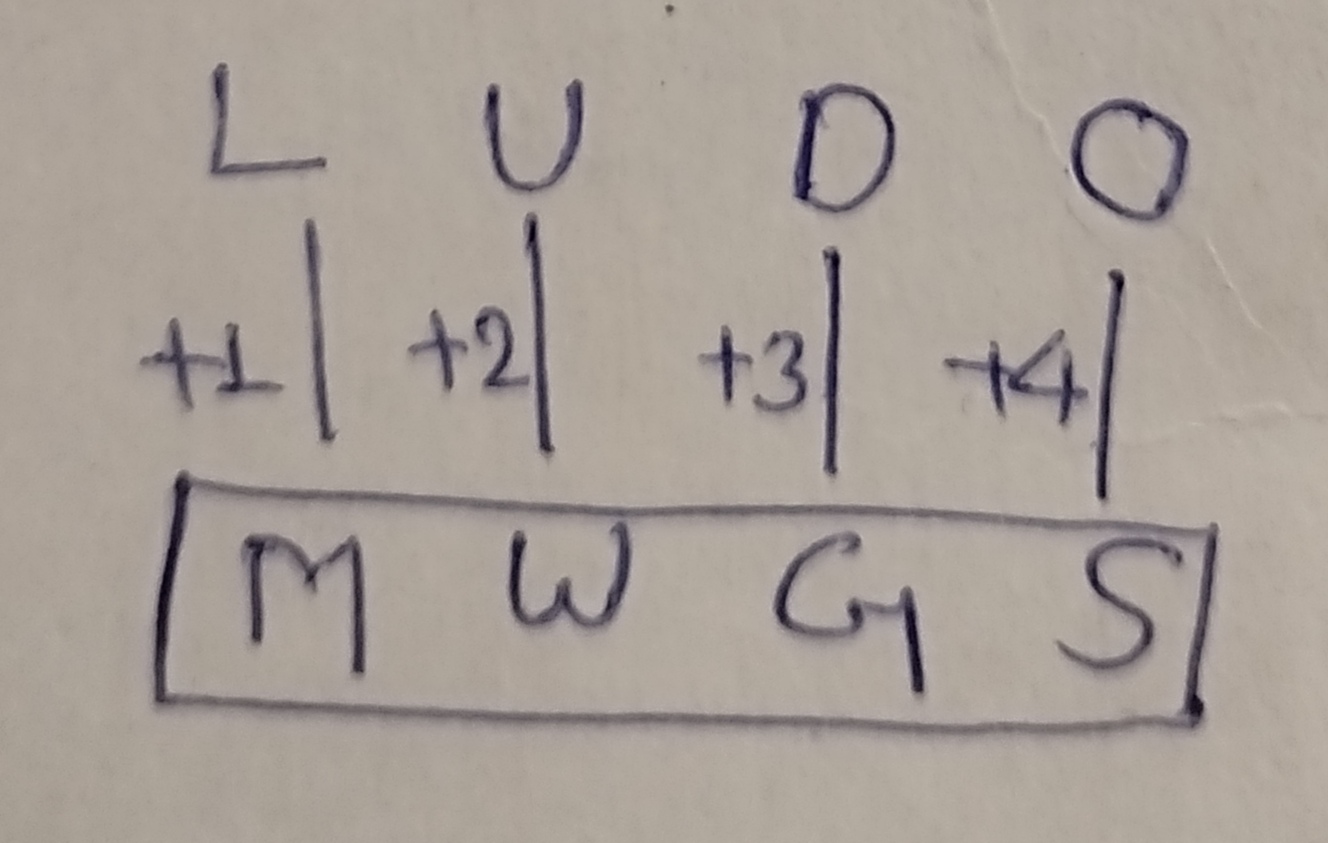 L U D O
+1 +2 +3 +4
M W G S